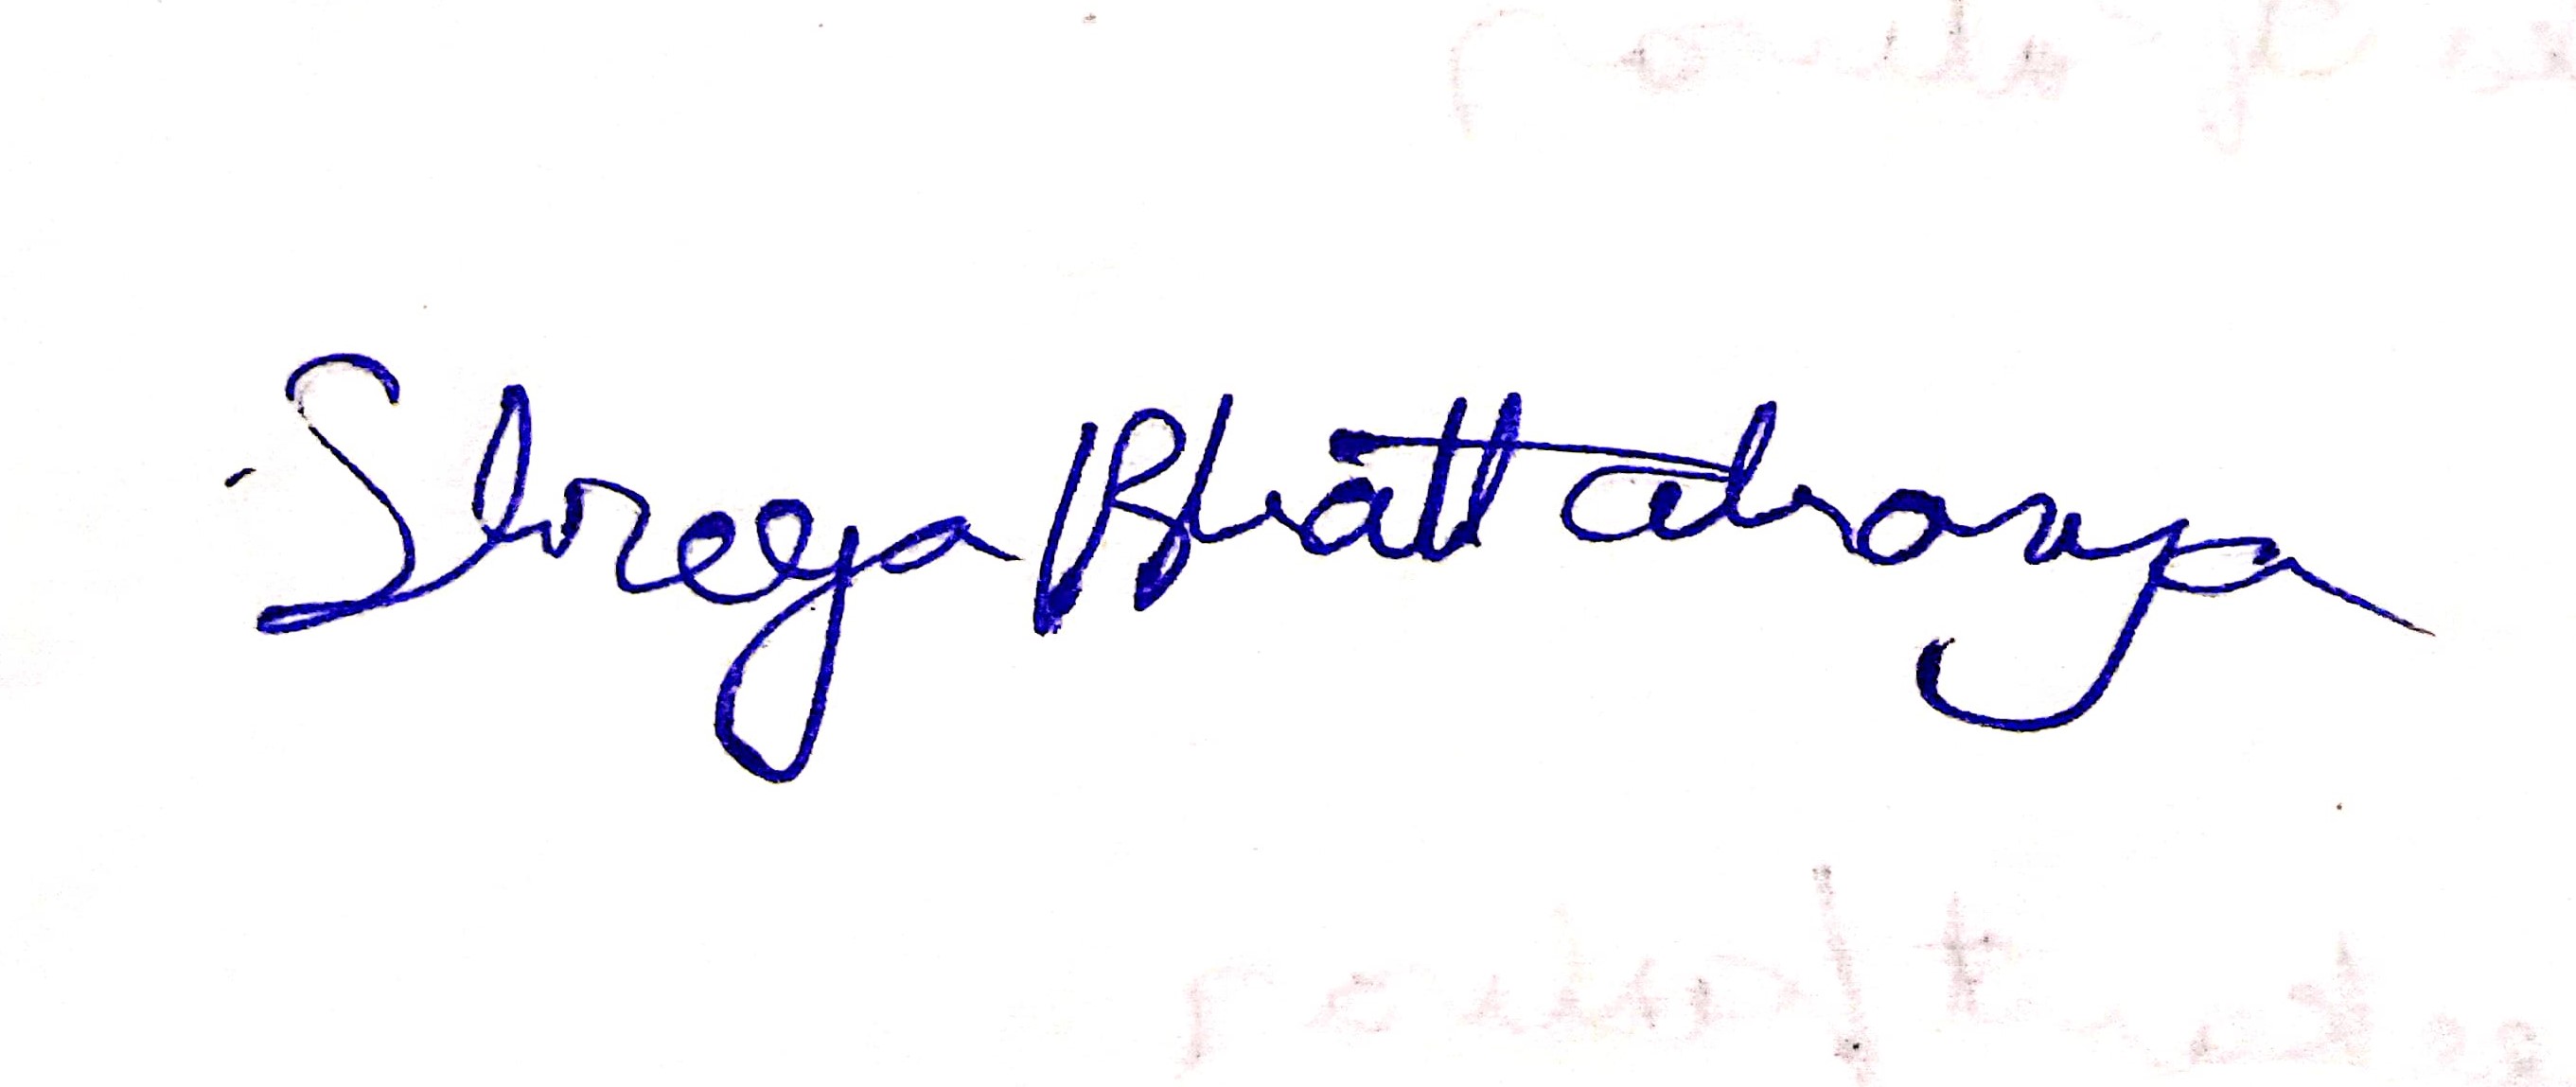 Shreya Bhattacharya